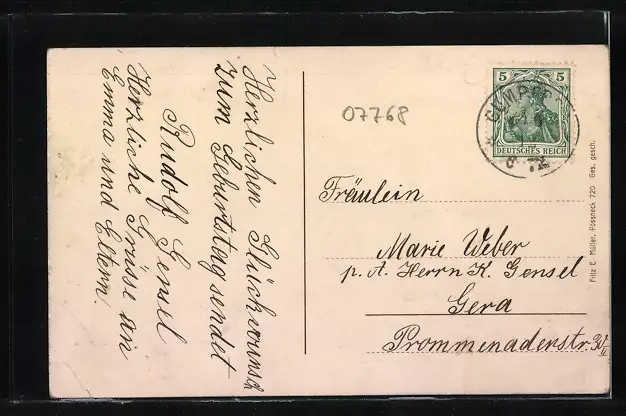 Herzlichen Glückwunsch
zum Geburtstag sendet
Rudolf Gensel
Herzliche Grüsse an
Emma und Eltern.
07768
5 5
DEUTSCHES REICH
Fräulein
Marie Weber
p. A. Herrn K. Gensel
Gera
Prommenadenstr.
Fritz E. Müller, Pössneck 720 Ges. gesch.